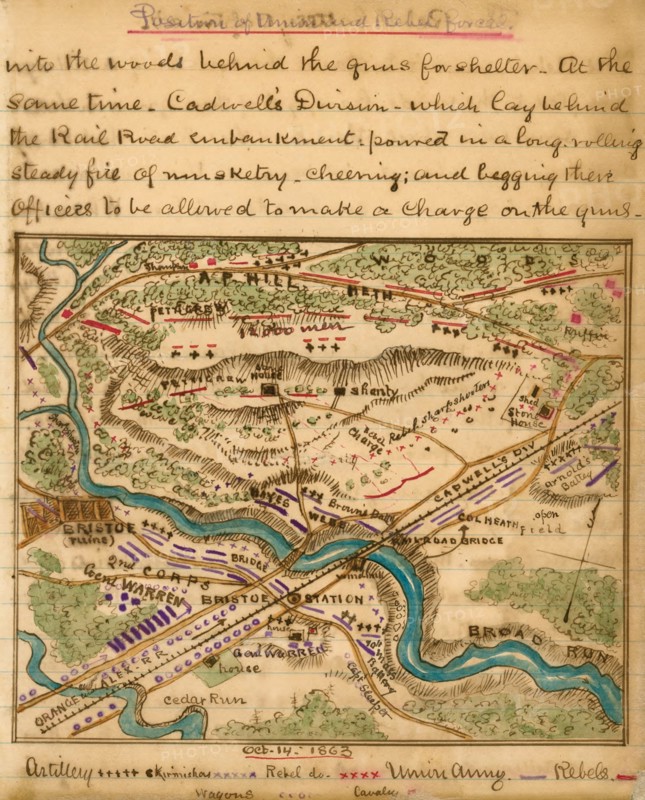 Position of Union and Rebel forces.
into the woods behind the guns for shelter - At the
same time - Cadwell's Division - which lay behind
the Rail Road embankment: poured in a long-rolling
steady fire of musketry - cheering; and begging their
Officers to be allowed to make a charge on the guns -
WOODS
A.P. HILL
HETH
PETTIGREW
12,000 men
Ruffin
PETTIGREW
House
Shanty
Rebel sharpshooters
Rebel
Charge
Shed
Stone
House
CADWELL'S DIV
Arnold's
Battery
HAYES
WEBB
Brown's Batt
COL HEATH
open
Field
RAILROAD BRIDGE
BRISTOE
(ruins)
2nd CORPS
Genl WARREN
BRIDGE
windmill
BRISTOE STATION
house
Genl WARREN
BROAD RUN
Battery
Capt Sleeper
house
ORANGE & ALEX. R.R.
Cedar Run
Oct. 14. 1863
Artillery ++++ Skirmishers xxxxx Rebel do - xxxx Union Army. — Rebels. —
Wagons Cavalry